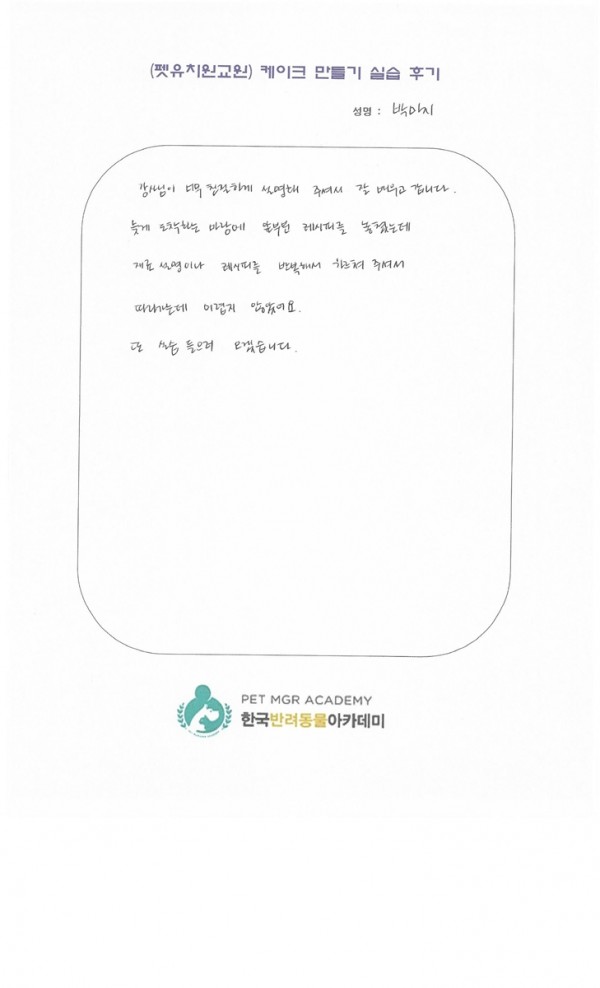 (펫유치원교원) 케이크 만들기 실습 후기
성명 : 박마지
강사님이 너무 친절하게 설명해 주셔서 잘 배우고 갑니다.
늦게 도착하는 바람에 앞부분 레시피를 놓쳤는데
재료 설명이나 레시피를 반복해서 해주셔서
따라가는데 어렵지 않았어요.
또 실습 들으러 오겠습니다.
PET MGR ACADEMY
한국반려동물아카데미